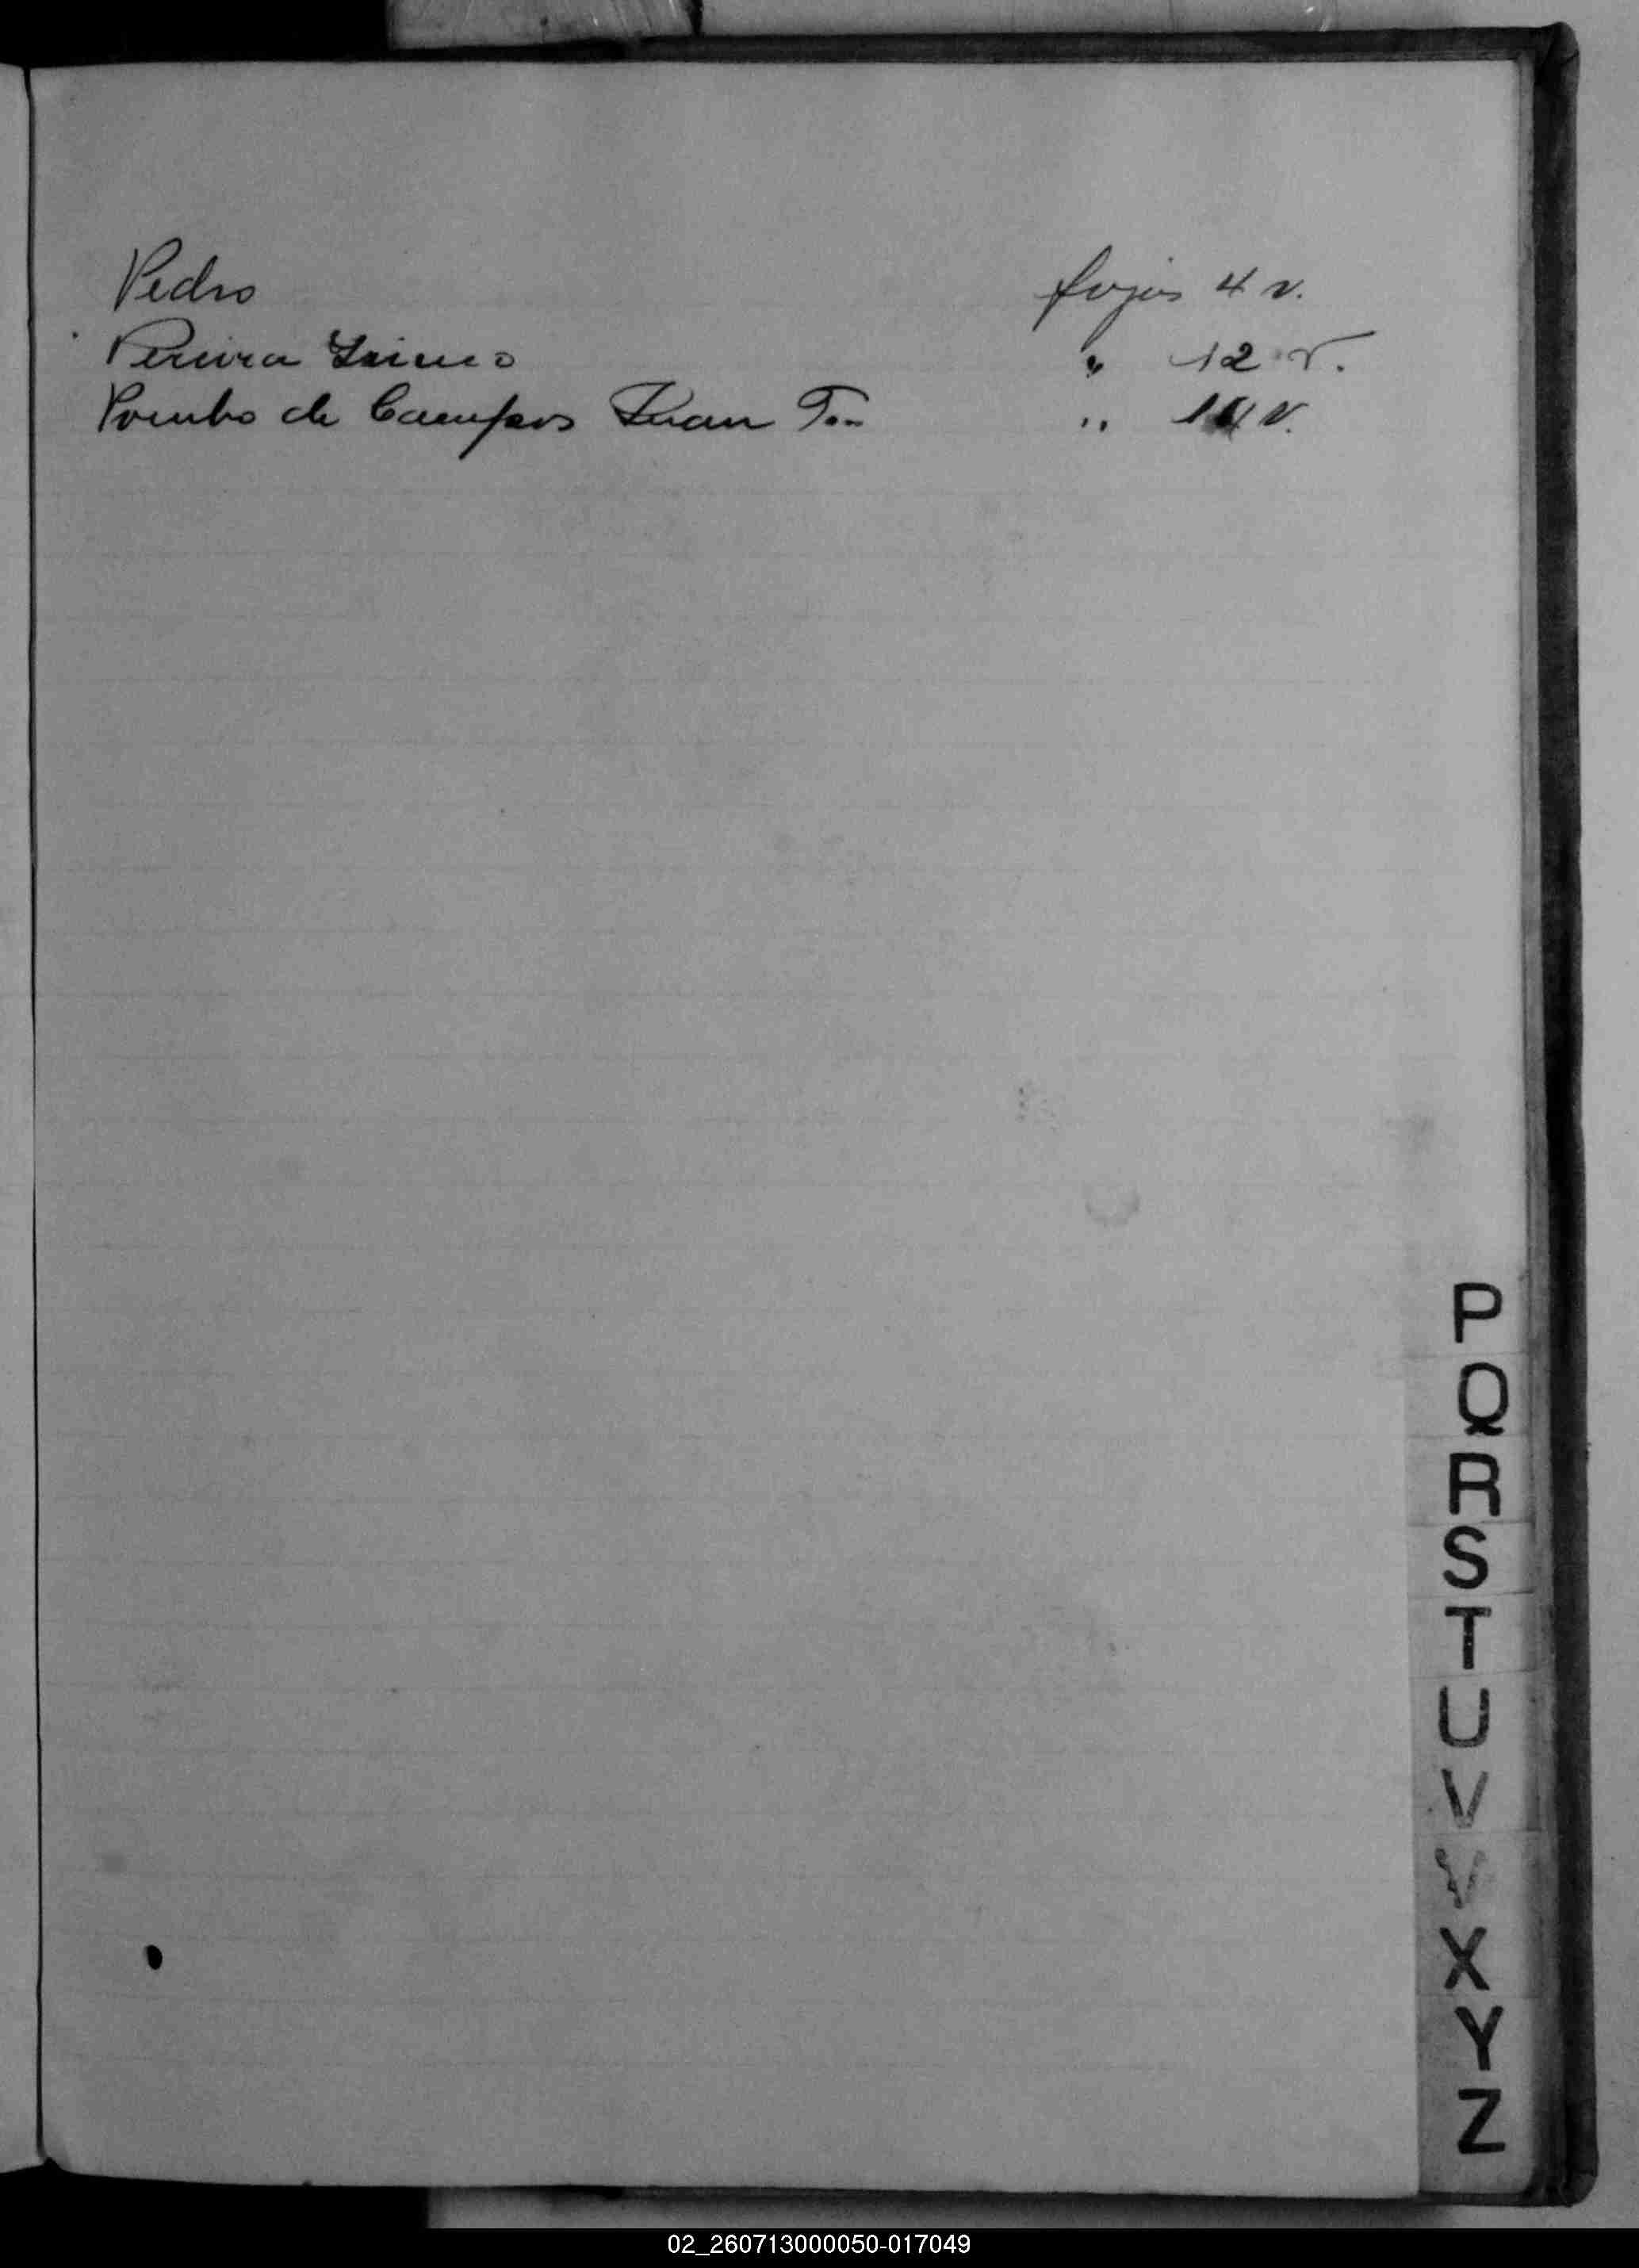 Pedro fojas 4 v.
Pereira " 12 v.
Pombo de Campos Juan " v.
P
Q
R
S
T
U
V
X
Y
Z
02_260713000050-017049